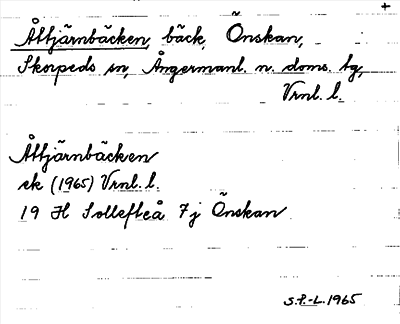 Åttjärnbäcken, bäck, Önskan,
Skorpeds sn, Ångermanl. n. doms. tg,
Vrnl. l.
Åttjärnbäcken
ek (1965) Vrnl. l.
19 H Sollefteå 7j Önskan
S.P.-L. 1965